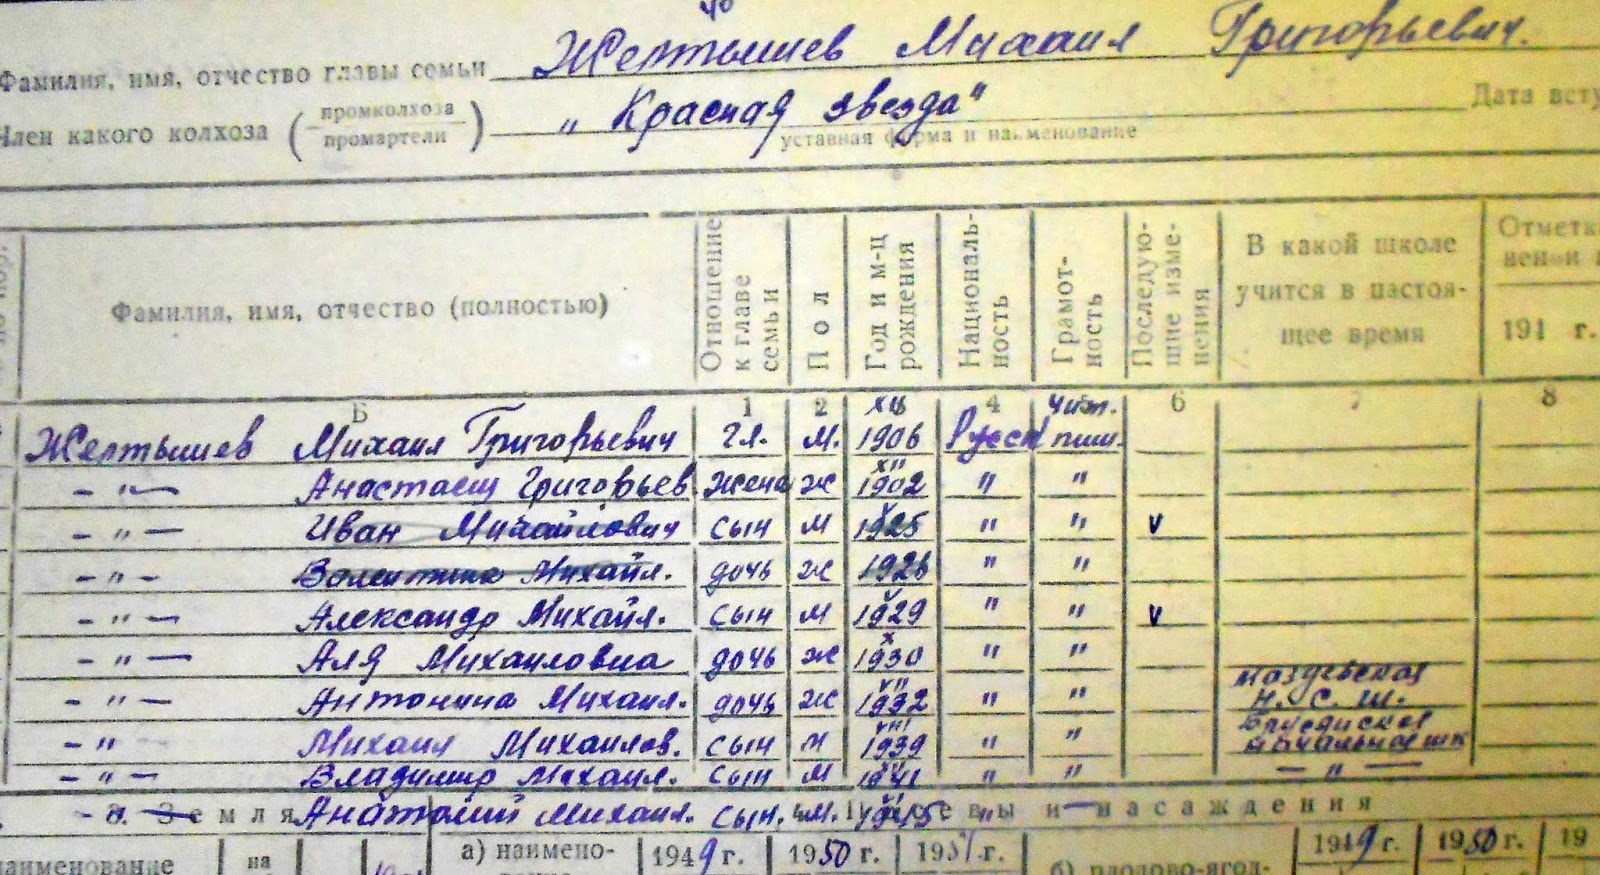 Фамилия, имя, отчество главы семьи Желтышев Михаил Григорьевич.
Член какого колхоза (промколхоза промартели) „Красная звезда" Дата всту
уставная форма и наименование
Фамилия, имя, отчество (полностью) Отношение к главе семьи Пол Год и м-ц рождения Националь-ность Грамот-ность Последую-щие изме-нения В какой школе учится в настоя-щее время Отметк 191 г.
Б 1 2 XII 4 Чит. 6 7 8
Желтышев Михаил Григорьевич Гл. М. 1906 Русск пиш.
- " - Анастасия Григорьев. жена Ж XII 1902 " "
- " - Иван Михайлович сын М V 1925 " " v
- " - Валентина Михайл. дочь Ж 1926 " "
- " - Александр Михайл. сын М V 1929 " " v
- " - Аля Михаиловна дочь Ж X 1930 " "
- " - Антонина Михаил. дочь Ж VII 1932 " " Н. С. Ш.
- " - Михаил Михаилов. сын М VIII 1939 " " начальное шк
- " - Владимир Михаил. сын М 1941 " " - " -
Земля Анатолий Михаил. сын. М. 1945 " и насаждения
наименование на а) наимено- 1949 г. 1950 г. 1951 г. б) плодово-ягод- 1949 г. 1950 г. 19